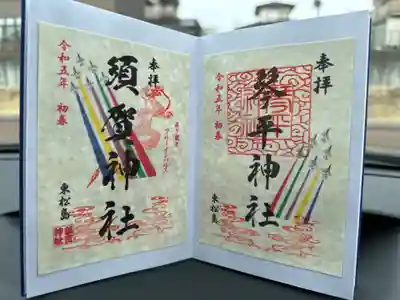 奉拝
令和五年 初春
須賀神社
東松島
奉拝
令和五年 初春
琴平神社
東松島